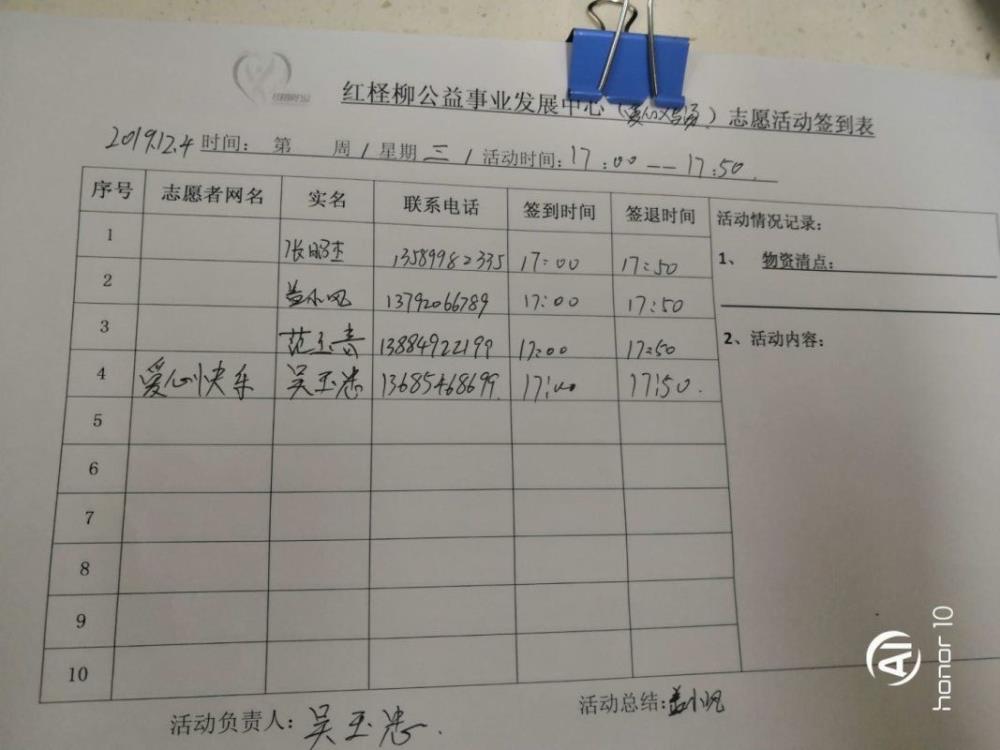 红柽柳公益事业发展中心（爱心义игр）志愿活动签到表
2019.12.4 时间： 第 周 / 星期 三 / 活动时间：17:00——17:50.
序号 志愿者网名 实名 联系电话 签到时间 签退时间 活动情况记录：
1 张昭杰 13589982335 17:00 17:50 1、 物资清点：
2 盖小凤 13792066789 17:00 17:50
3 范玉青 13884922199 17:00 17:50 2、活动内容：
4 爱心快乐 吴玉忠 13685468699 17:00 17:50.
5
6
7
8
9
10
活动负责人：吴玉忠. 活动总结：盖小凤
AI honor 10